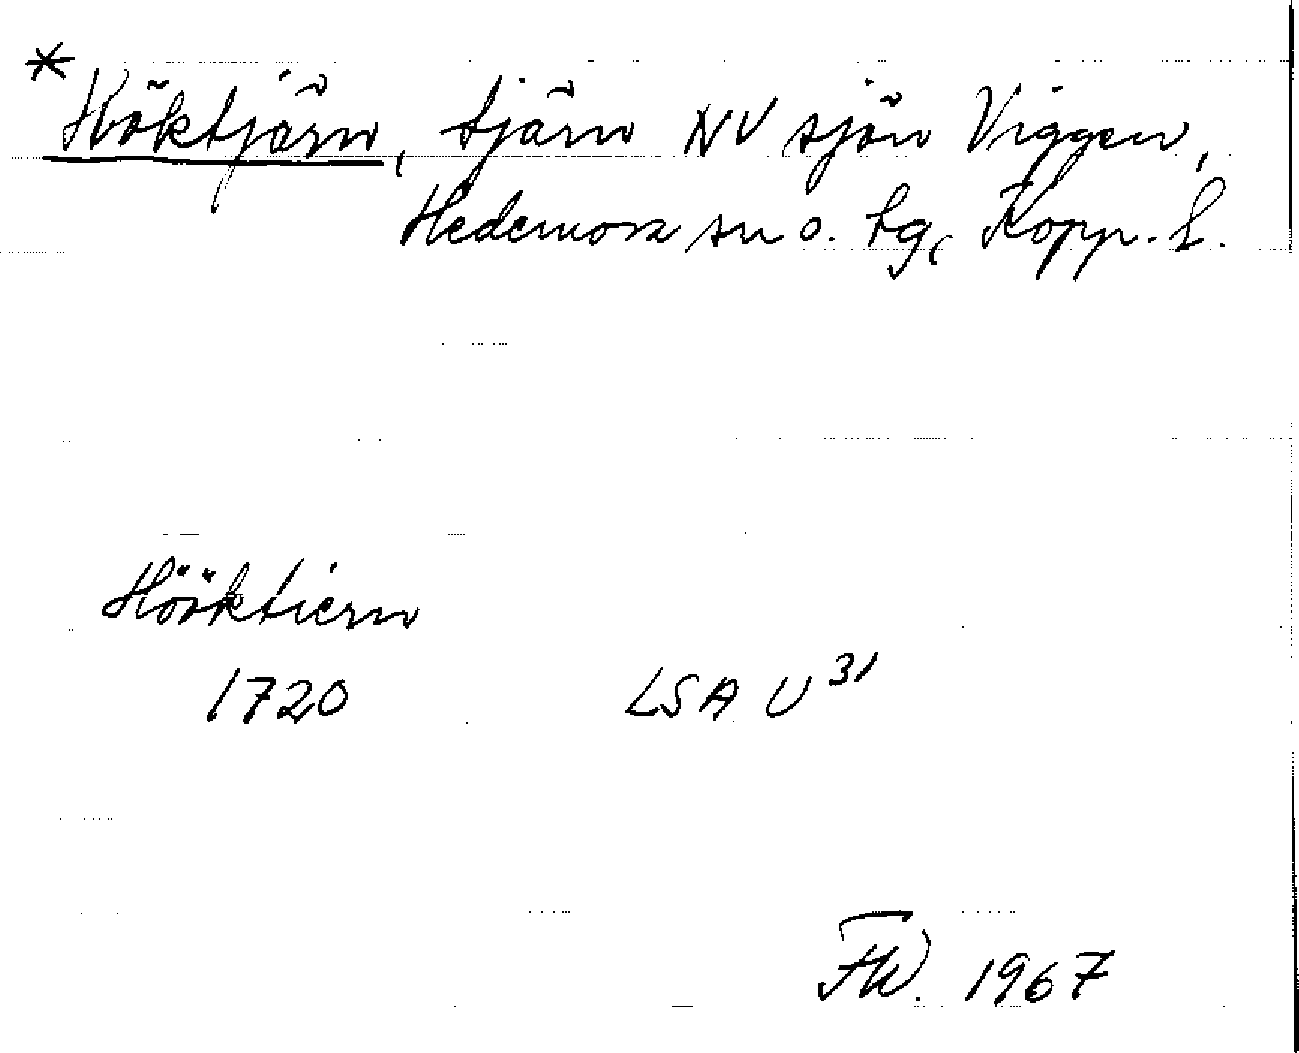 *Höktjärn, tjärn NV sjön Viggen,
Hedemora sn o. tg, Kopp. l.
Hööktiern
1720 LSA U³¹
1967